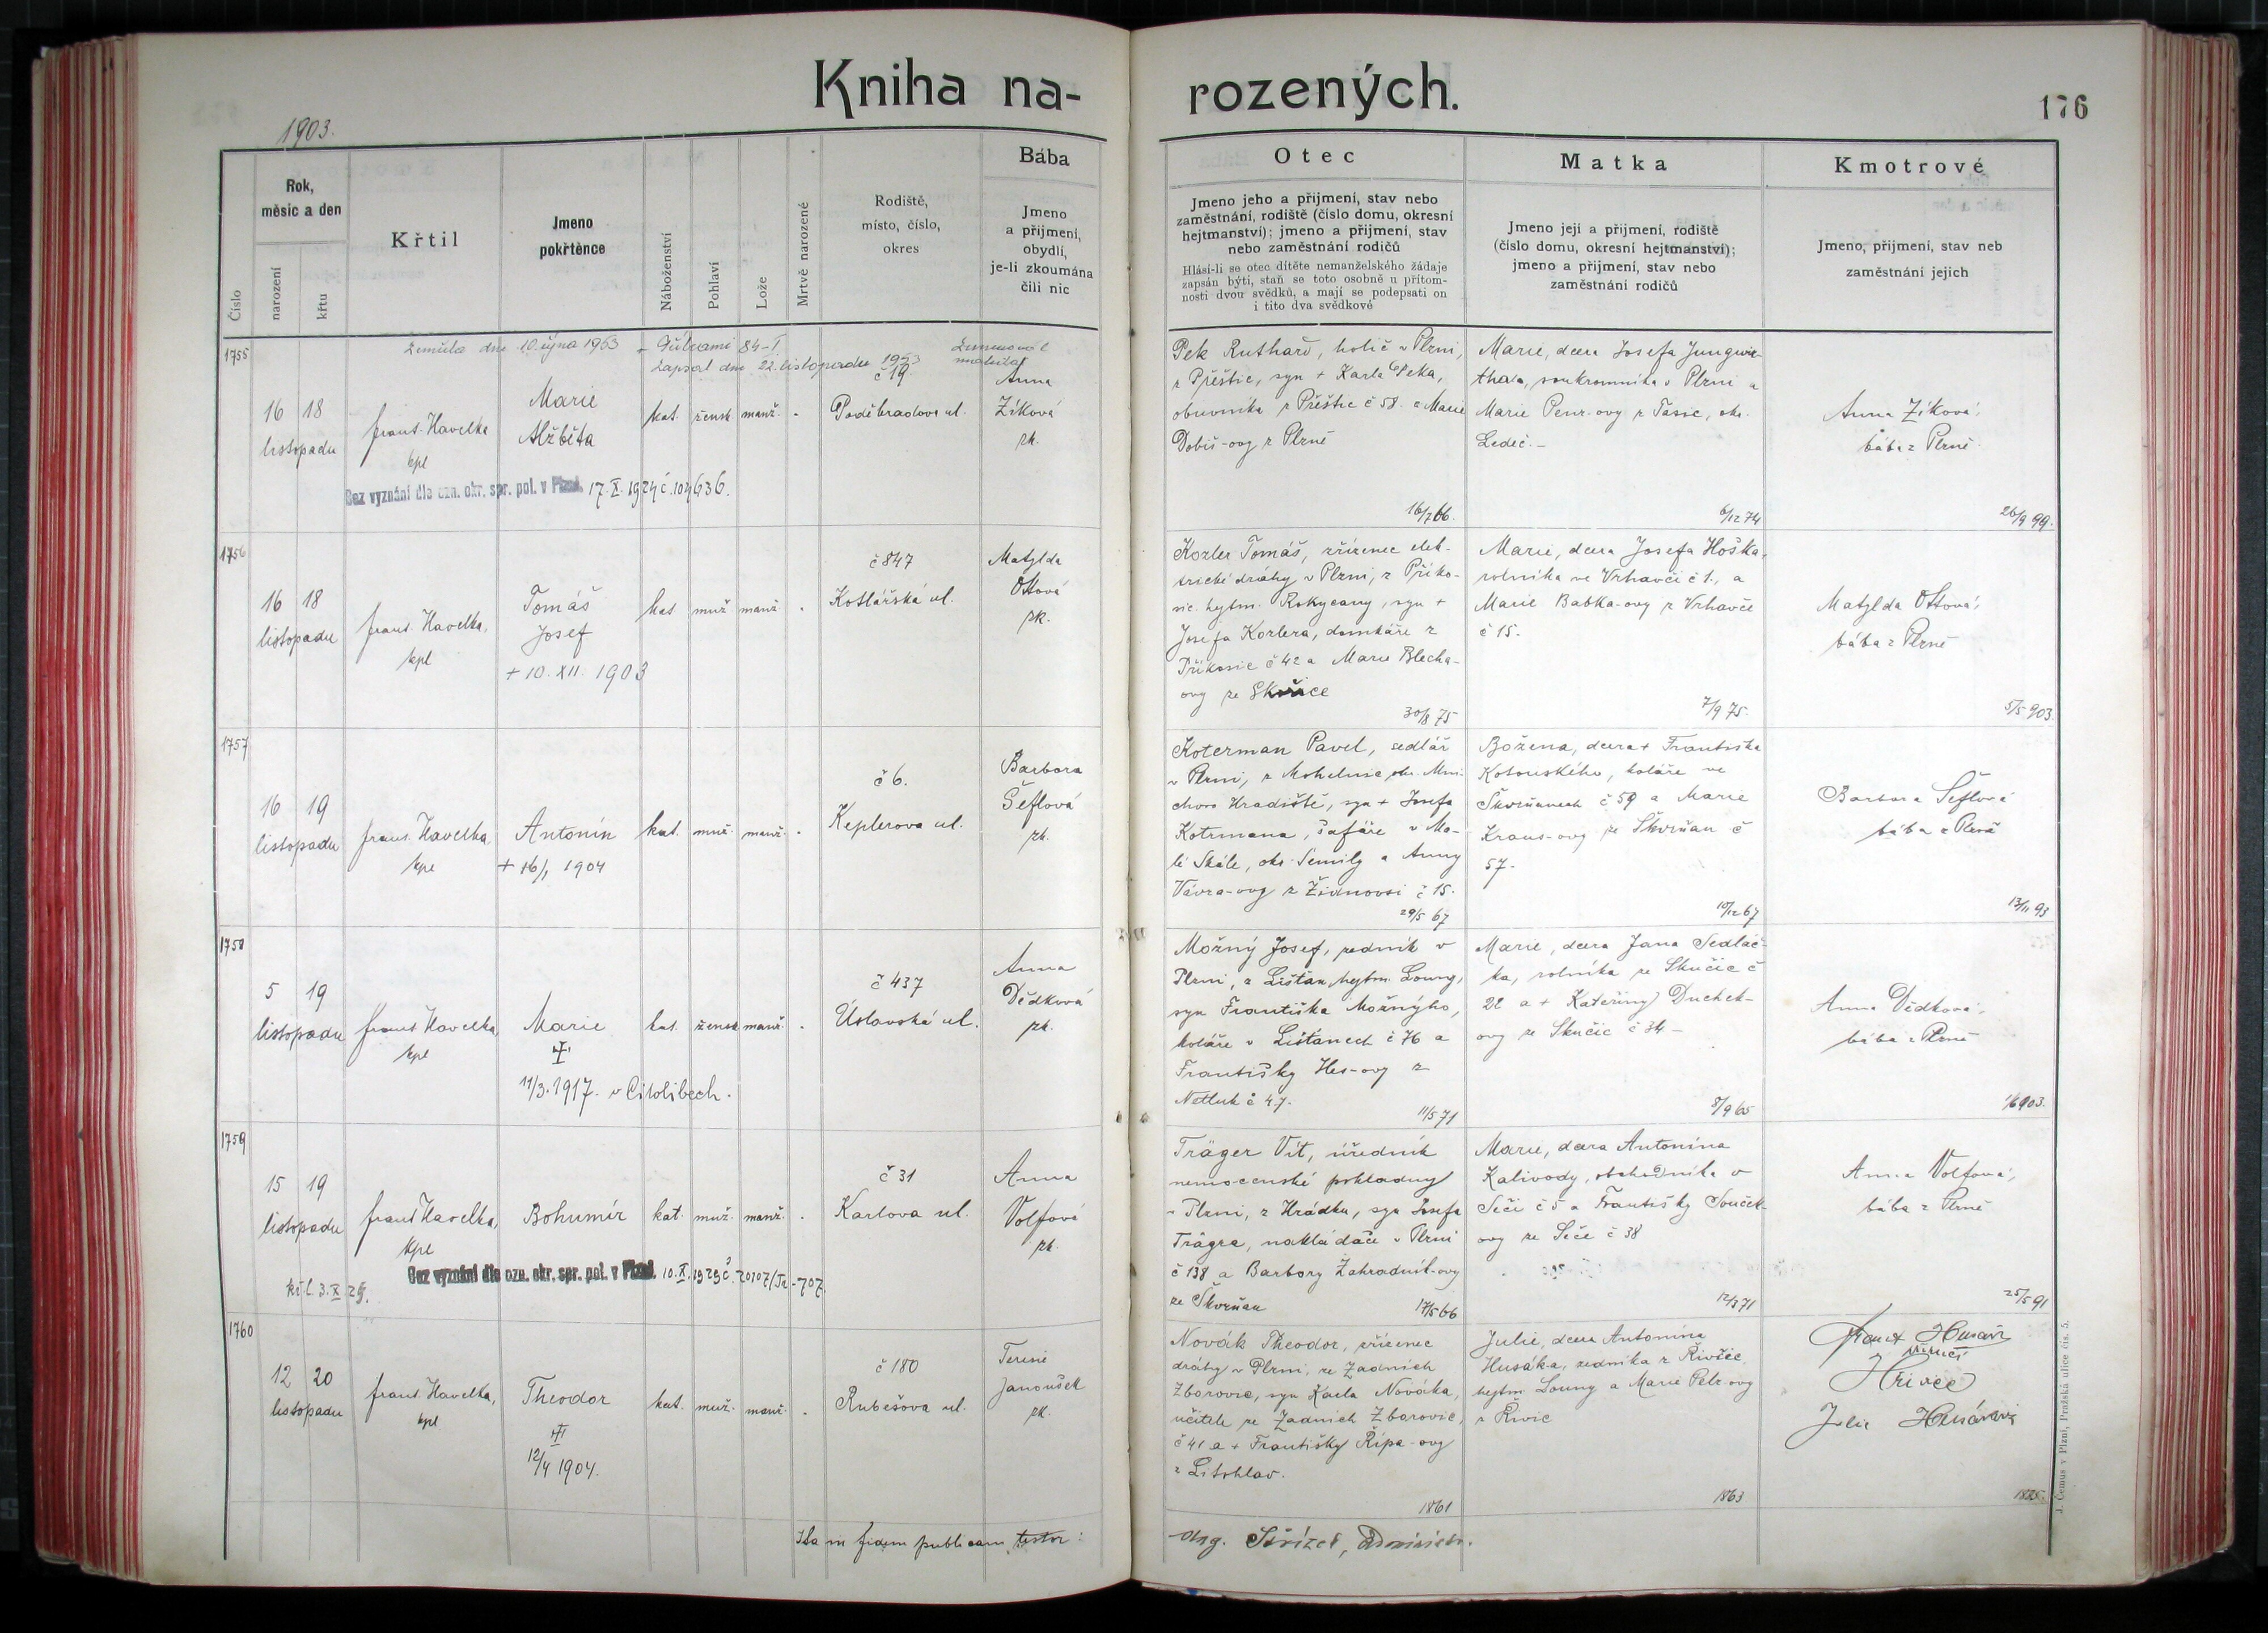 Kniha na-
rozených.
176
1903.
Číslo
Rok,
měsíc a den
narození
křtu
Křtil
Jmeno
pokřtěnce
Náboženství
Pohlaví
Lože
Mrtvě narozené
Rodiště,
místo, číslo,
okres
Bába
Jmeno
a příjmení,
obydlí,
je-li zkoumána
čili nic
Otec
Jmeno jeho a příjmení, stav nebo
zaměstnání, rodiště (číslo domu, okresní
hejtmanství); jmeno a příjmení, stav
nebo zaměstnání rodičů
Hlásí-li se otec dítěte nemanželského žádaje
zapsán býti, staň se toto osobně u přítom-
nosti dvou svědků, a mají se podepsati on
i tito dva svědkové
Matka
Jmeno její a příjmení, rodiště
(číslo domu, okresní hejtmanství);
jmeno a příjmení, stav nebo
zaměstnání rodičů
Kmotrové
Jmeno, příjmení, stav neb
zaměstnání jejich
1755
Zemřela dne 10. října 1953 v Příbrami 84-I
zapsal dne 22. listopadu 1953
16 18
listopadu
frant. Havelka
kpl
Marie
Alžběta
kat. žensk. manž. -
č 19
Poděbradova ul.
Anna
Zíková
zk.
Bez vyznání dle ozn. okr. spr. pol. v Plzni. 17. X. 1924 č. 104636.
Pek Ruthard, holič v Plzni,
z Přeštic, syn + Karla Peka,
obuvníka z Přeštic č 58. a Marie
Dobiš-ovy z Plzně
16/7 66.
Marie, dcera Josefa Jungwir-
tha, soukromníka v Plzni a
Marie Penz-ovy z Tasic, okr.
Ledeč.-
6/12 74
Anna Zíková,
bába z Plzně
26/9 99.
1756
16 18
listopadu
frant. Havelka,
kpl
Tomáš
Josef
+ 10. XII. 1903
kat. muž. manž. -
č 847
Kotlářská ul.
Matylda
Ottová
zk.
Kozler Tomáš, zřízenec elek-
trické dráhy v Plzni, z Příko-
sic hejtm. Rokycany, syn +
Josefa Kozlera, domkáře z
Příkosic č 42 a Marie Blecha-
ovy ze Skořice
30/8 75
Marie, dcera Josefa Hoška,
rolníka ve Vrhavči č 1., a
Marie Babka-ovy z Vrhavče
č 15.
7/9 75.
Matylda Ottová,
bába z Plzně
5/5 903.
1757
16 19
listopadu
frant. Havelka,
kpl
Antonín
+ 16/1 1904
kat. muž. manž. -
č 6.
Keplerova ul.
Barbora
Šeflová
zk.
Koterman Pavel, sedlář
v Plzni, z Mohelnic, okr. Mni-
chovo Hradiště, syn + Josefa
Kotrmana, šafáře v Ma-
lé Skále, okr. Semily a Anny
Vávra-ovy z Židnovsi č 15.
29/5 67
Božena, dcera + Františka
Kotouského, koláře ve
Škvrňanech č 59 a Marie
Kraus-ovy ze Škvrňan č
57.
10/12 67
Barbora Šeflová
bába z Plzně
13/11 93
1758
5 19
listopadu
frant. Havelka,
kpl
Marie
11/3. 1917. v Citolibech.
kat. žensk manž. -
č 437
Úslavská ul.
Anna
Dědková
zk.
Možný Josef, zedník v
Plzni, z Lišťan, hejtm. Louny,
syn Františka Možnýho,
koláře v Lišťanech č 76 a
Františky Hes-ovy z
Netluk č 47.
11/5 71
Marie, dcera Jana Sedláč-
ka, rolníka ze Skučic č
22 a + Kateřiny Duchek-
ovy ze Skučic č 34 -
8/9 65
Anna Dědková,
bába z Plzně
1759
15 19
listopadu
frant Havelka,
kpl
Bohumír
kat. muž. manž. -
č 31
Karlova ul.
Anna
Volfová
zk.
Bez vyznání dle ozn. okr. spr. pol. v Plzni. 10. X. 1929 č. 20107
Träger Vít, úředník
nemocenské pokladny
v Plzni, z Hrádku, syn Josefa
Trägra, nakladače v Plzni
č 138 a Barbory Zahradník-ovy
ze Škvrňan
17/5 66
Marie, dcera Antonína
Kalivody, obchodníka v
Seči č 5 a Františky Souček-
ovy ze Seče č 38
12/3 71
Anna Volfová,
bába z Plzně
25/5 91
1760
12 20
listopadu
frant. Havelka,
kpl
Theodor
12/4 1904.
kat. muž. manž. -
č 180
Rubešova ul.
Terezie
Janoušek
zk.
Novák Theodor, zřízenec
dráhy v Plzni, ze Zadních
Zborovic, syn Karla Nováka,
učitele ze Zadních Zborovic,
č 41 a + Františky Řípa-ovy
z Litohlav.
1861
Julie, dcera Antonína
Husáka, zedníka z Řivčic
hejtm Louny a Marie Pelz-ovy
z Řivic
1863
Julie
Ita in fidem publicam testor:
J. Čemus v Plzni, Pražská ulice čís. 5.